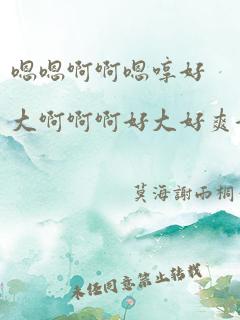 嗯嗯啊啊嗯哼好
大啊啊啊好大好爽
莫海謝雨桐
未经同意禁止转载